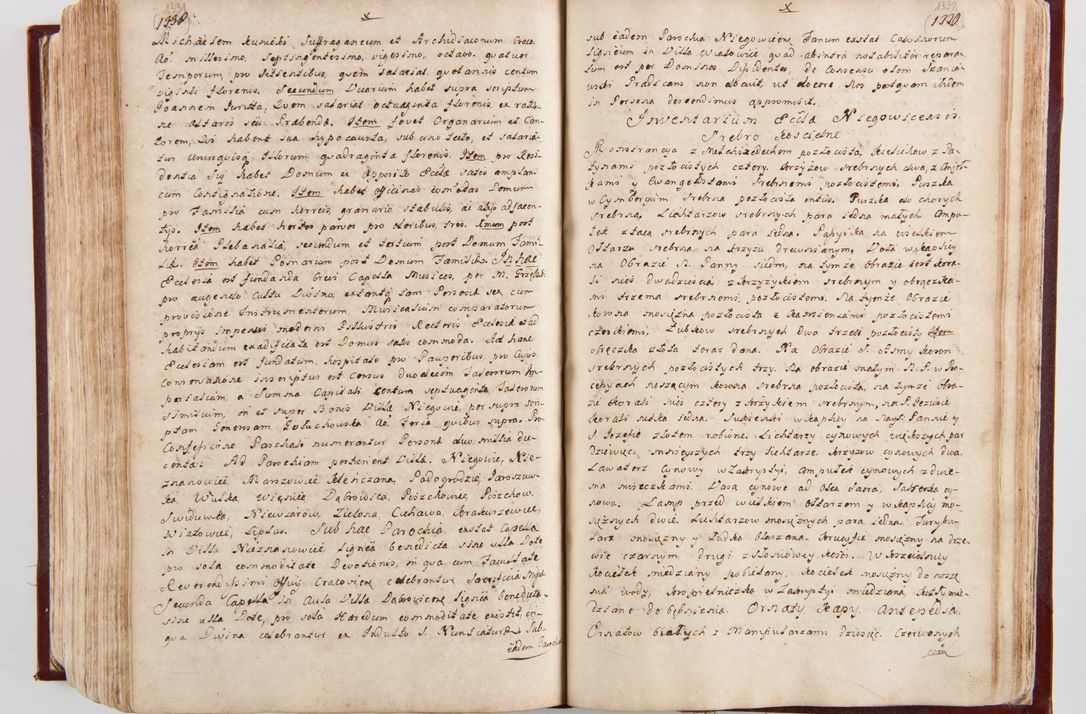 1331
1338
x
Michaëlem Kunicki Suffraganeum et Archidiaconum Craco.
Aō millesimo, Septingentesimo, vigesimo, octavo. quatuor
Temporum, pro Assistentibus, quem salariat quotannis centum
viginti florenis. Secundum Vicarium habet supra scriptum
Joannem quem salariat octuaginta florenis, ex ratio-
ne Altaris seu Præbendæ. Item fovet Organarium et Can-
torem, qui habent sua hypocausta, sub uno tecto, et salaria-
tur unusquisq illorum quadraginta florenis. Item pro Resi-
dentia sui habet Domum ex opposito Ecclæ satis amplam
cum Item habet officinas Domum
pro Familia cum horreis, granario stabulis, ac adjacen-
tijs. Item habet hortos parvos pro oleribus tres. Unum post
horrea Plebanalia, secundum et tertium post Domum Fami-
liæ. Item habet Pomarium post Domum Familiæ. In hac
Ecclesia est fundanda Capella Musices, per M.
pro augendo Cultu Divino extanti, tam Personæ sex cum
provisione Instrumentorum Musicalium comparatorum
proprijs impensis moderni Illustris Rectoris Ecclesiæ ad
habitandum exædificata est Domus satis commoda. Ad hanc
Ecclesiam est fundatum, hospitale pro Pauperibus, pro cujus
conservatione inscriptus est census duodecim Talerorum Im-
perialium, a Summa Capitali Centum septuaginta Talerorum
similium, in et super Bonis Villæ Niegowic, per supra scri-
ptam Generosam Goluchowska Aō quibus supra. Pro
Confessione Paschali numerantur Personæ duo millia du-
centa. Ad Parochiam pertinent Villæ, Niegowic, Nie-
znanowice, Marszowice Klęczana, Podogrodzie, Jaroszow-
ka, Wulka Więsnice Dąbrowica, Pierzchowiec, Pierzchow,
Swidowka, Niewiarow, Zielona Cichawa, Krakuszowice,
Wiatowice, Liplas. Sub hac Parochia, exstat Capella
in Villa Nieznanowice, lignea benedicta sine ulla Dote
pro sola commoditate Devotionis, in qua cum facultate
Reverendissimi Officij Cracovien celebrantur
Secunda Capella in Aula Villæ Dabrovicen lignea benedicta
sine ulla Dote, pro sola Hæredum commoditate existit, in
qua Divina celebrantur ex Indulto S. Nunciaturæ. Sub-
eadem Parochia
1332
1339
x
sub eadem Parochia Niegowicen, Fanum exstat Calvinorum
ligneum in Villa Wiatowice, quod notabiliter repara-
tum est per Dominos Dissidentes, de Consensu olim Szania-
wski
in Persona descendimus appromisit.
Inventarium Ecclæ Niegowicensis
Srebro Koscielne
Monstrancya z Melchizedechem pozłocista, Kielichow z Pa-
tynami pozłocistych cztery. Krzyżow srebrnych dwa, z Anjoł-
kami y Ewangelistami srebrnemi pozłocistemi. Puszka
w Cymborium srebrna pozłocista intus. Puszka do chorych
srebrna, Lichtarzow srebrnych para iedna małych Ampu-
łek z tacą srebrnych para iedna. Passyika na wielkim
Ołtarzu srebrna, na krzyżu drewnianym. Vota w kaplicy
na Obrazie N. Panny siedm, na tymże obrazie iest kora-
li nici dwadziescia z krzyżykiem srebrnym y obrączka-
mi trzema srebrnemi, pozłocistemi. Na tymże Obrazie
korona mosiężna pozłocista z kamieniami pozłocistemi
czeskiemi, Zubkow srebrnych dwa trzeci pozłocisty
obrączka złota teraz dana. Na Obrazie S. Anny koron
srebrnych pozłocistych trzy. Na obrazie małym N. P. w Pro-
cessyach noszącym korona srebrna pozłocista, na tymże obra-
zie korali nici cztery z krzyżykiem srebrnym, na P. Jezusie
korali nitka iedna. Sukienki w kaplicy na Nays: Pannie y
S. Jozefie złotem robione. Lichtarzy cynowych większych par
dziewięc. mnieyszych trzy lichtarze Krzyzow cynowych dwa.
Lawaterz Cynowy w Zakrystyi, Ampułek cynowych z dwie-
ma miseczkami. Vasa cynowe ad Olea Sacra, cy-
nowa. Lamp przed wielkim ołtarzem y w kaplicy mo-
siężnych dwie. Lichtarzow mosiężnych para iedna. Turybu-
larz mosiężny y łodka blaszana. Krucyfix mosiężny na drze-
wie czarnym drugi z słoniowey kości. W Krzcielnicy
kociełek miedziany pobielany, kociełek mosiężny do nosze-
nia wody, Kropielniczka w Zakrystyi miedziana, Kotły mie-
dziane do bębnienia. Ornaty, Kapy, Antepedia.
Ornatow białych z Manipularzami dziesięc. Czerwonych